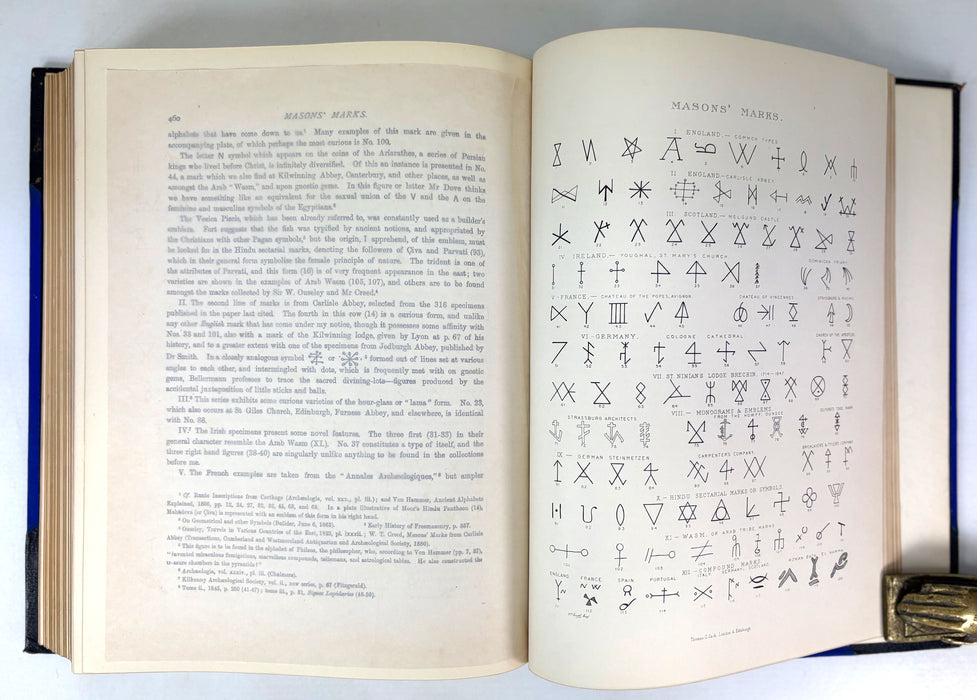 460 MASONS' MARKS.
alphabets that have come down to us.¹ Many examples of this mark are given in the
accompanying plate, of which perhaps the most curious is No. 100.
The letter N symbol which appears on the coins of the Ariarathes, a series of Persian
kings who lived before Christ, is infinitely diversified. Of this an instance is presented in No.
44, a mark which we also find at Kilwinning Abbey, Canterbury, and other places, as well as
amongst the Arab "Wasm," and upon gnostic gems. In this figure or letter Mr Dove thinks
we have something like an equivalent for the sexual union of the V and the Λ on the
feminine and masculine symbols of the Egyptians.²
The Vesica Piscis, which has been already referred to, was constantly used as a builder's
emblem. Fort suggests that the fish was typified by ancient notions, and appropriated by
the Christians with other Pagan symbols,³ but the origin, I apprehend, of this emblem, must
be looked for in the Hindu sectarial marks, denoting the followers of Çiva and Parvati (93),
which in their general form symbolise the female principle of nature. The trident is one of
the attributes of Parvati, and this form (10) is of very frequent appearance in the east; two
varieties are shown in the examples of Arab Wasm (105, 107), and others are to be found
amongst the marks collected by Sir W. Ouseley and Mr Creed.⁴
II. The second line of marks is from Carlisle Abbey, selected from the 316 specimens
published in the paper last cited. The fourth in this row (14) is a curious form, and unlike
any other English mark that has come under my notice, though it possesses some affinity with
Nos. 33 and 101, also with a mark of the Kilwinning lodge, given by Lyon at p. 67 of his
history, and to a greater extent with one of the specimens from Jedburgh Abbey, published by
Dr Smith. In a closely analogous symbol or ⁵ formed out of lines set at various
angles to each other, and intermingled with dots, which is frequently met with on gnostic
gems, Bellermann professes to trace the sacred divining-lots—figures produced by the
accidental juxtaposition of little sticks and balls.
III.⁶ This series exhibits some curious varieties of the hour-glass or "lama" form. No. 23,
which also occurs at St Giles Church, Edinburgh, Furness Abbey, and elsewhere, is identical
with No. 88.
IV.⁷ The Irish specimens present some novel features. The three first (31-33) in their
general character resemble the Arab Wasm (XI.). No. 37 constitutes a type of itself, and the
three right hand figures (38-40) are singularly unlike anything to be found in the collections
before me.
V. The French examples are taken from the "Annales Archæologiques," ⁸ but ampler
¹ Cf. Runic Inscriptions from Carthage (Archæologia, vol. xxx., pl. iii.); and Von Hammer, Ancient Alphabets
Explained, 1806, pp. In a plate illustrative of Moor's Hindu Pantheon (14),
Mahadeva (or Çiva) is represented with an emblem of this form in his right hand.
² On Geometrical and other Symbols (Builder, June 6, 1863). ³ Early History of Freemasonry, p. 357.
⁴ Ouseley, Travels in Various Countries of the East, 1823, pl. lxxxii.; W. T. Creed, Masons' Marks from Carlisle
Abbey (Transactions, Cumberland and Westmoreland Antiquarian and Archæological Society, 1880).
⁵ This figure is to be found in the alphabet of Philaos, the philosopher, who, according to Von Hammer
"invented miraculous fumigations, marvellous compounds, talismans, and astrological tables. He also constructed the
treasure chambers in the pyramids!"
⁶ Archæologia, vol. xxxiv., pl. iii. (Chalmers).
⁷ Kilkenny Archæological Society, vol. ii., new series, p. 67 (Fitzgerald).
⁸ Tome ii., 1845, p. 250 (41-47); tome iii., p. 31, Signes Lapidaires (48-50).
MASONS' MARKS.
I ENGLAND.— COMMON TYPES
II ENGLAND—CARLISLE ABBEY
III SCOTLAND.—MELGUND CASTLE
IV IRELAND.— YOUGHAL, ST. MARY'S CHURCH DOMINICAN FRIARY
V. FRANCE.— CHATEAU OF THE POPES, AVIGNON CHATEAU OF VINCENNES
VI. GERMANY. COLOGNE CATHEDRAL CHURCH OF THE APOSTLES
VII. ST NINIANS LODGE BRECHIN. 1714-1847
VIII.— MONOGRAMS & EMBLEMS
STRASBURG ARCHITECTS. FROM THE HOWFF, DUNDEE
IX — GERMAN STEINMETZEN CARPENTERS COMPANY.
X.— HINDU SECTARIAL MARKS OR SYMBOLS.
XI.— WASM, OR ARAB TRIBE MARKS
XII — COMPOUND MARKS
ENGLAND FRANCE SPAIN PORTUGAL ITALY GERMANY SCOTLAND
Thomas C. Jack, London & Edinburgh